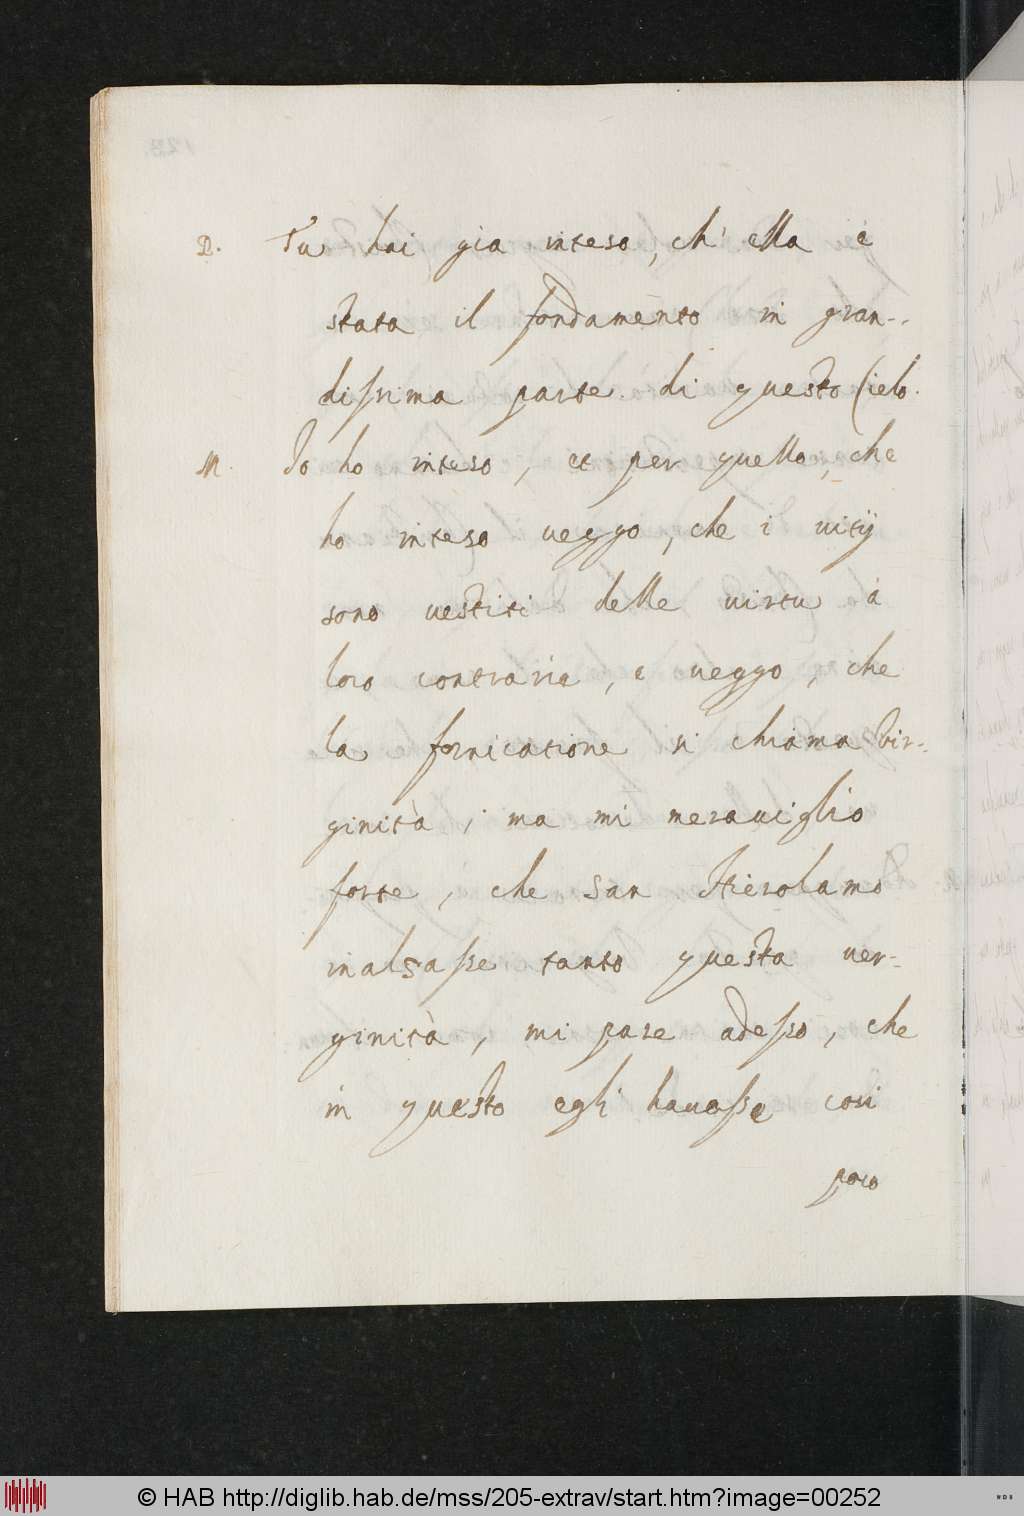 P. Tu hai gia inteso, ch' ella è
stata il fondamento in gran-
dissima parte di questo Cielo.
M. Io ho inteso, et per quello, che
ho inteso ueggo, che i uitij
sono uestiti delle uirtu à
loro contrarie, e ueggo, che
la fornicatione si chiama Vir-
ginità, ma mi merauiglio
forte, che san Hierolamo
inalsasse tanto questa uer-
ginità, mi pare adesso, che
in questo egli hauesse così
poco
© HAB http://diglib.hab.de/mss/205-extrav/start.htm?image=00252